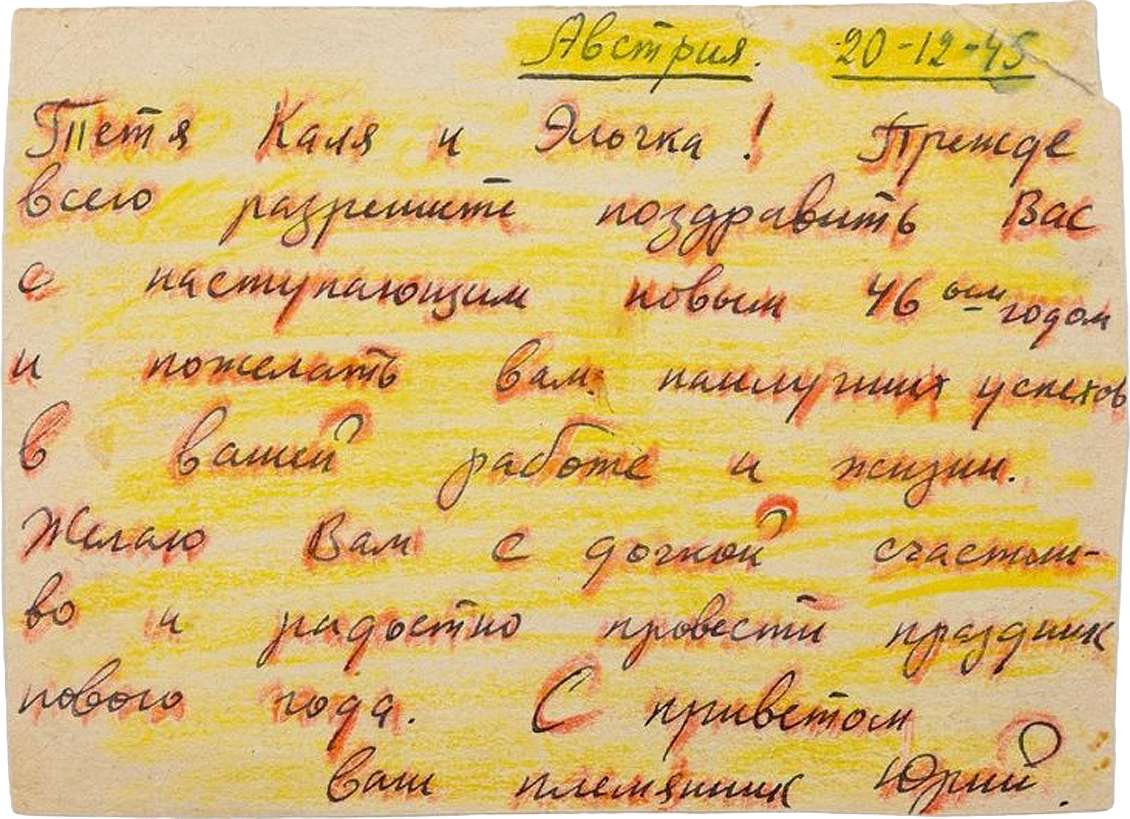 Австрия. 20-12-45
Тетя Каля и Элочка! Прежде
всего разрешите поздравить Вас
с наступающим новым 46 ым годом
и пожелать вам наилучших успехов
в вашей работе и жизни.
Желаю Вам с дочкой счастли-
во и радостно провести праздник
нового года. С приветом
ваш племянник Юрий.